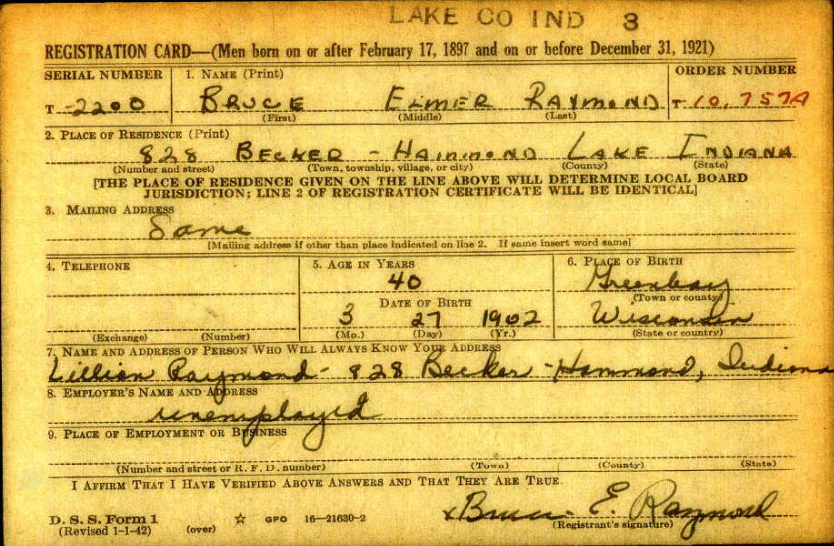 LAKE CO IND 3
REGISTRATION CARD—(Men born on or after February 17, 1897 and on or before December 31, 1921)
SERIAL NUMBER 1. NAME (Print) ORDER NUMBER
T -2200 BRUCE ELMER RAYMOND T 10,757A
(First) (Middle) (Last)
2. PLACE OF RESIDENCE (Print)
828 BECKER - HAMMOND LAKE INDIANA
(Number and street) (Town, township, village, or city) (County) (State)
[THE PLACE OF RESIDENCE GIVEN ON THE LINE ABOVE WILL DETERMINE LOCAL BOARD
JURISDICTION; LINE 2 OF REGISTRATION CERTIFICATE WILL BE IDENTICAL]
3. MAILING ADDRESS
Same
[Mailing address if other than place indicated on line 2. If same insert word same]
4. TELEPHONE 5. AGE IN YEARS 6. PLACE OF BIRTH
40 Greenbay
DATE OF BIRTH (Town or county)
3 27 1902 Wisconsin
(Exchange) (Number) (Mo.) (Day) (Yr.) (State or country)
7. NAME AND ADDRESS OF PERSON WHO WILL ALWAYS KNOW YOUR ADDRESS
Lillian Raymond - 828 Becker - Hammond, Indiana
8. EMPLOYER'S NAME AND ADDRESS
unemployed
9. PLACE OF EMPLOYMENT OR BUSINESS
(Number and street or R. F. D. number) (Town) (County) (State)
I AFFIRM THAT I HAVE VERIFIED ABOVE ANSWERS AND THAT THEY ARE TRUE.
x Bruce E. Raymond
D. S. S. Form 1 ☆ GPO 16—21630-2 (Registrant's signature)
(Revised 1-1-42) (over)